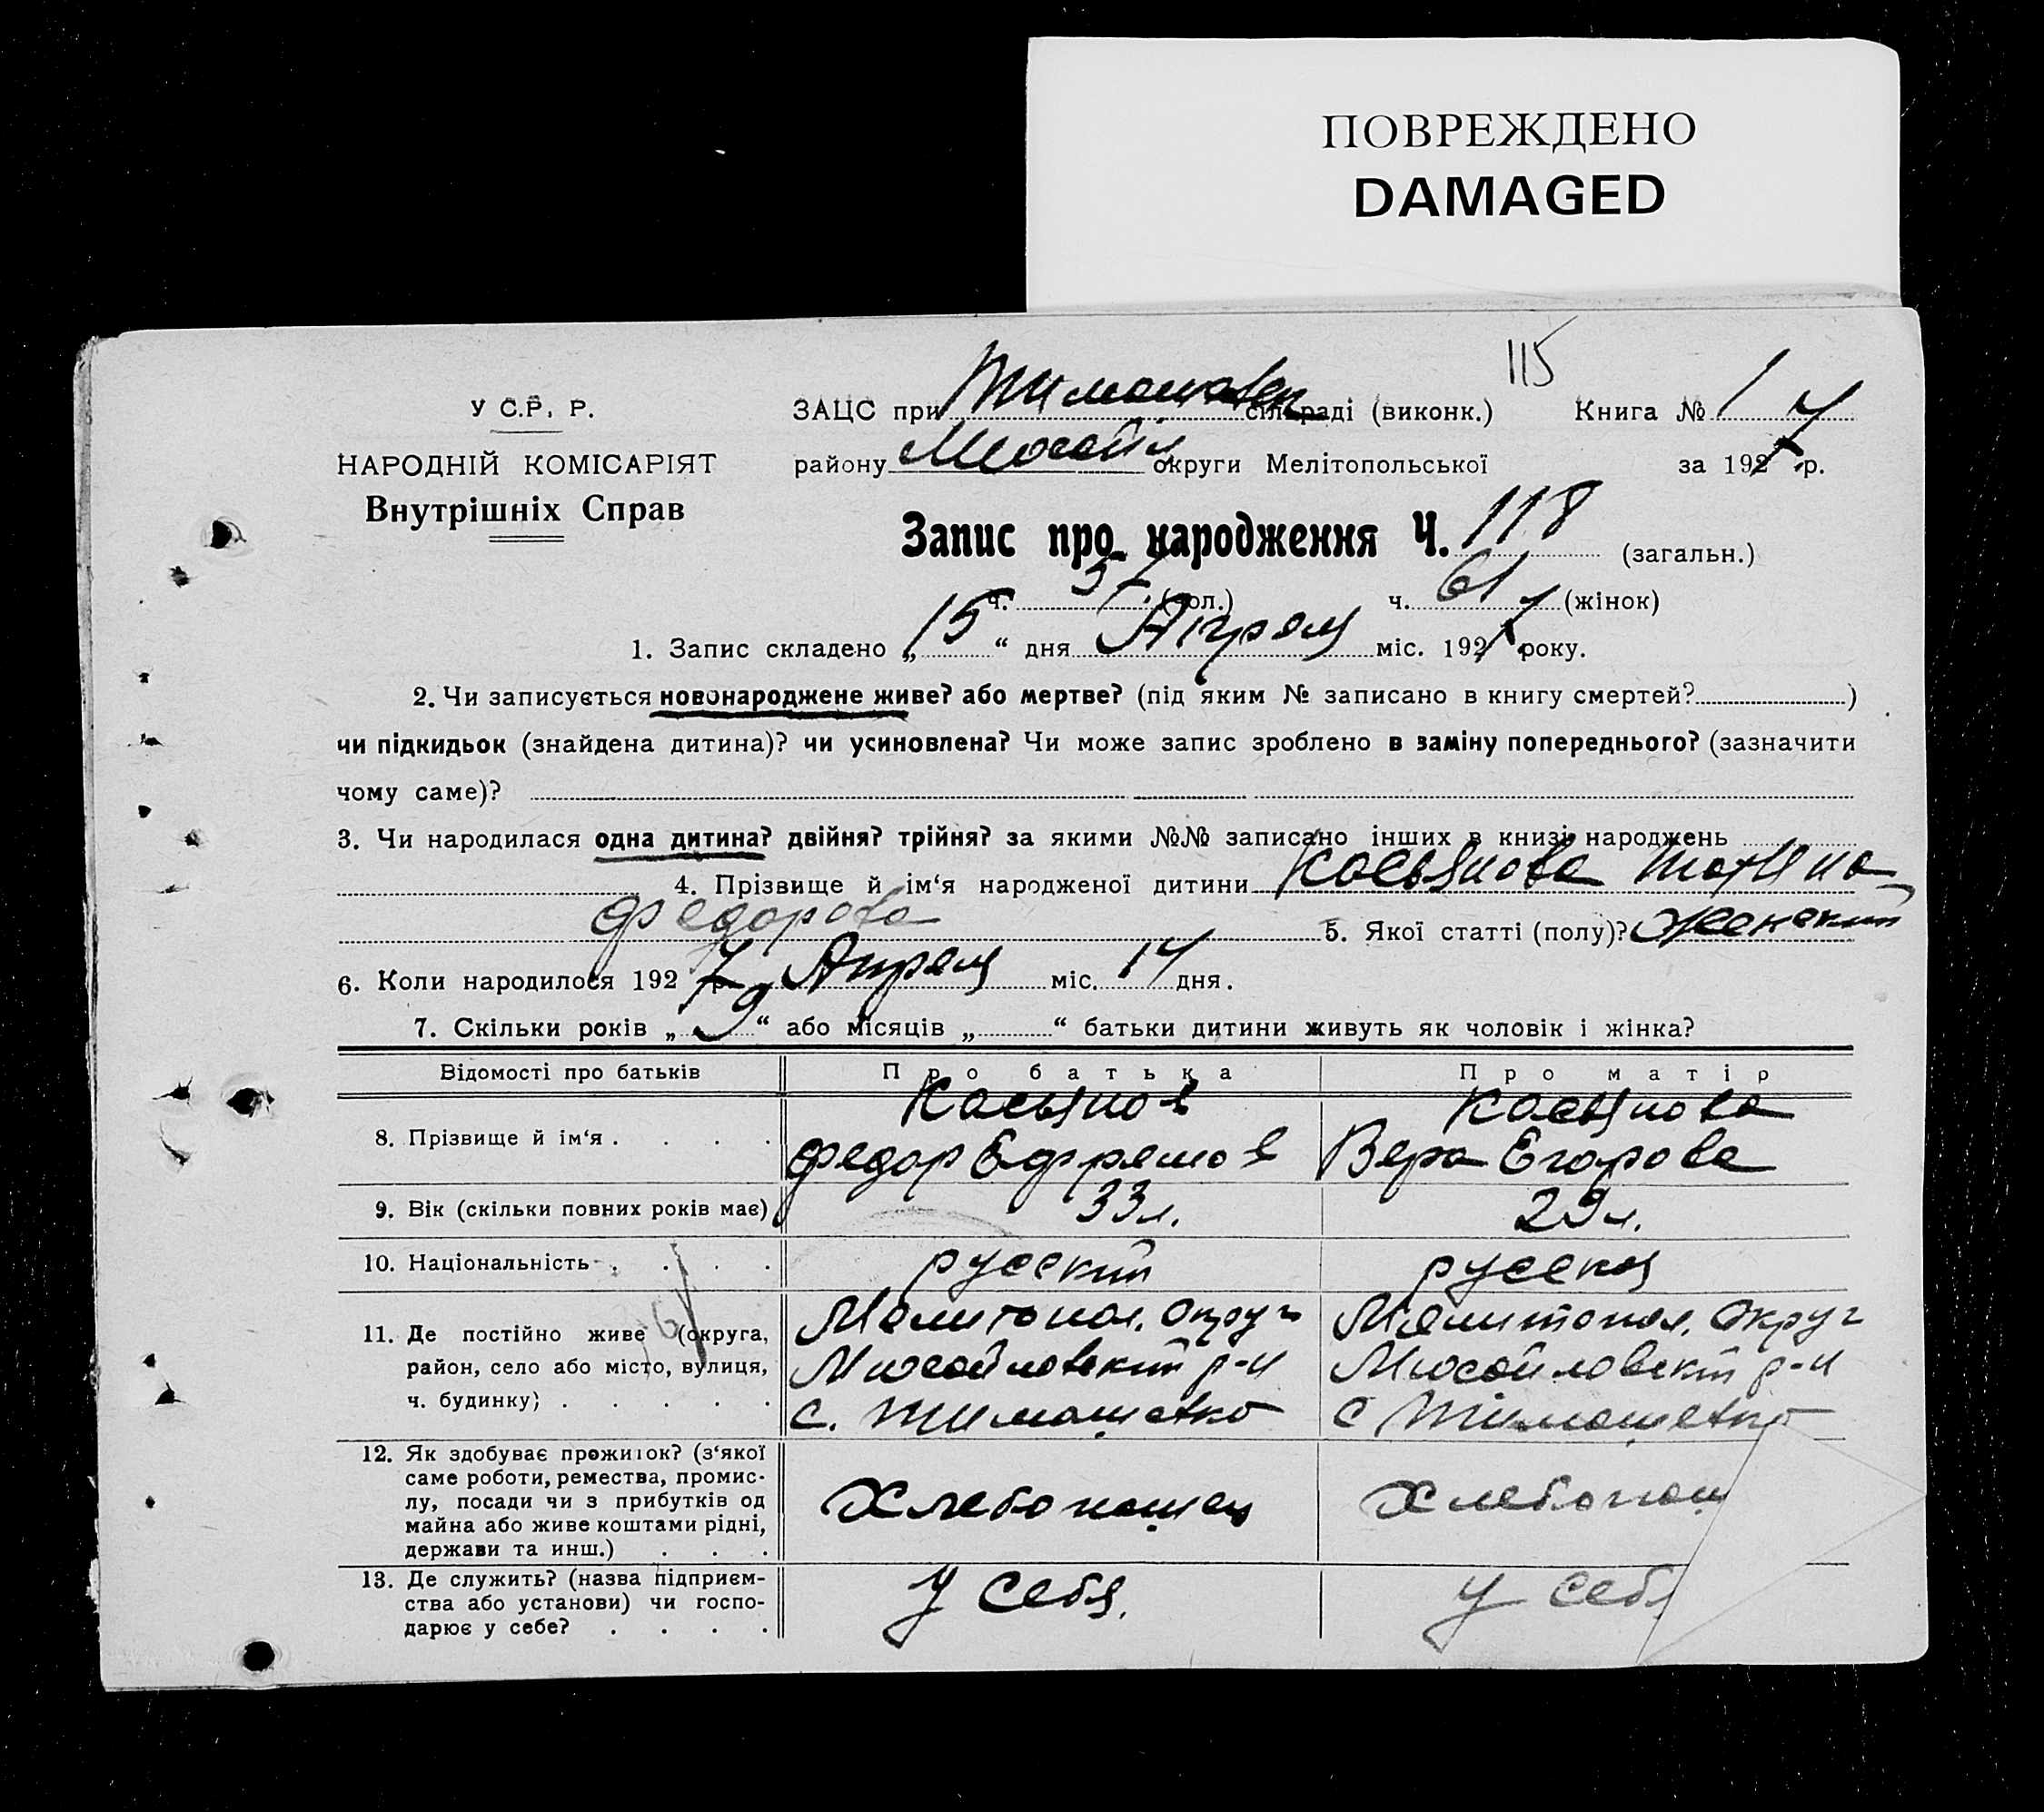 ПОВРЕЖДЕНО
DAMAGED
115
У С.Р. Р.
НАРОДНІЙ КОМІСАРІЯТ
Внутрішніх Справ
ЗАЦС при Тимошовск сільраді (виконк.) Книга № 1
району округи Мелітопольської за 1927 р.
Запис про народження Ч. 118 (загальн.)
ч. 57 (чол.) ч. 61 (жінок)
1. Запис складено „ 15 “ дня Апреля міс. 1927 року.
2. Чи записується новонароджене живе? або мертве? (під яким № записано в книгу смертей? )
чи підкидьок (знайдена дитина)? чи усиновлена? Чи може запис зроблено в заміну попереднього? (зазначити
чому саме)?
3. Чи народилася одна дитина? двійня? трійня? за якими №№ записано інших в книзі народжень
4. Прізвище й ім‘я народженої дитини Касьянова Татяна
Федорова 5. Якої статті (полу)? женский
6. Коли народилося 1927 р. Апреля міс. 14 дня.
7. Скільки років „ 9 “ або місяців „ “ батьки дитини живуть як чоловік і жінка?
Відомості про батьків Про батька Про матір
8. Прізвище й ім‘я . . . . Касьянов Федор Ефремов Касьянова Вера Егорова
9. Вік (скільки повних років має) 33 л. 29 л.
10. Національність . . . . русский русская
11. Де постійно живе (округа, Мелитопол. округ Мелитопол. округ
район, село або місто, вулиця, р-н р-н
ч. будинку) . . . . . с. Тимошевко с Тимошевко
12. Як здобуває прожиток? (з‘якої
саме роботи, ремества, промис-
лу, посади чи з прибутків од Хлебопашец Хлебопаш
майна або живе коштами рідні,
держави та инш.) . . .
13. Де служить? (назва підприєм- У себя. У себя
ства або установи) чи госпо-
дарює у себе? . . . .